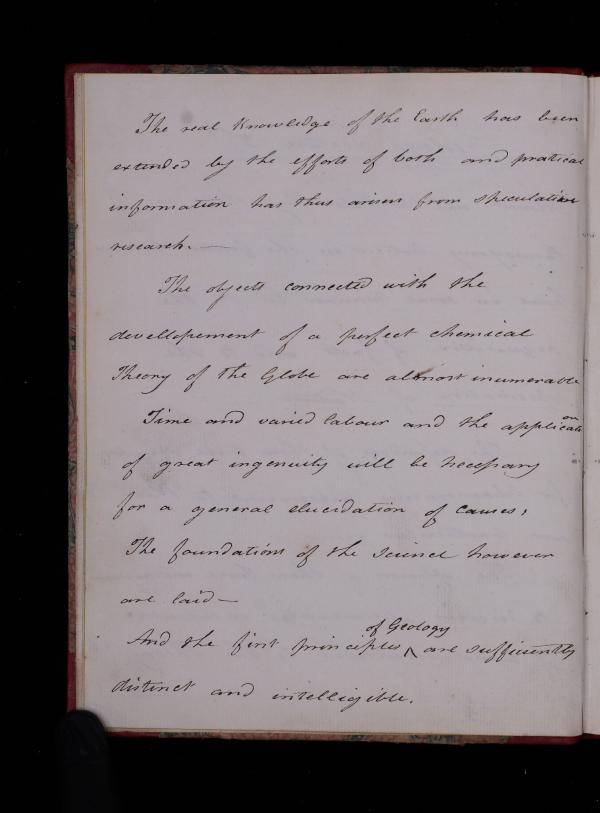 The real Knowledge of the Earth has been
extended by the efforts of both and pratical
information has thus arisen from speculative
research. —
The objects connected with the
devellopement of a perfect chemical
Theory of the Globe are almost inumerable
Time and varied labour and the application
of great ingenuity will be necessary
for a general elucidation of causes,
The foundations of the science however
are laid —
And the first principles ^ of Geology are sufficiently
distinct and intelligible.